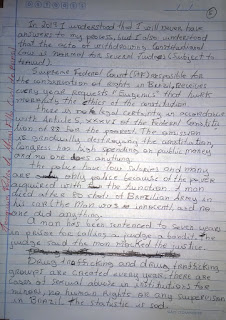 In 2013 I understood that I will never have
answers to my pains, but I also understood
that the acts of withdrawing constitutional
laws is normal for several fundaes (subject to
tenure).
Supreme Federal Court (SFC) responsible for
the conservation of rights in Brazil receives
every year requests that
the ethics of the constitution.
There is no legal certainty in accordance
with Article 5 of the Federal Constitu
tion of 88 for the present. The omission
is gradually destroying the constitution,
Congress has high spending on public money
and no one does anything.
The police have low salaries and many
are only police because of the power
acquired with the function. A man
died with 80 shots of Brazilian Army in
his car (the man was innocent) and no
one said anything.
A man has been sentenced to seven years
in prison for calling a judge a bandit. The
judge said the man mocked the justice.
Drug trafficking and drug trafficking
groups are created every year, there are
cases of sexual abuse in institutions for
minors, no Human Rights or any supervision
in Brazil. The statistic is sad.